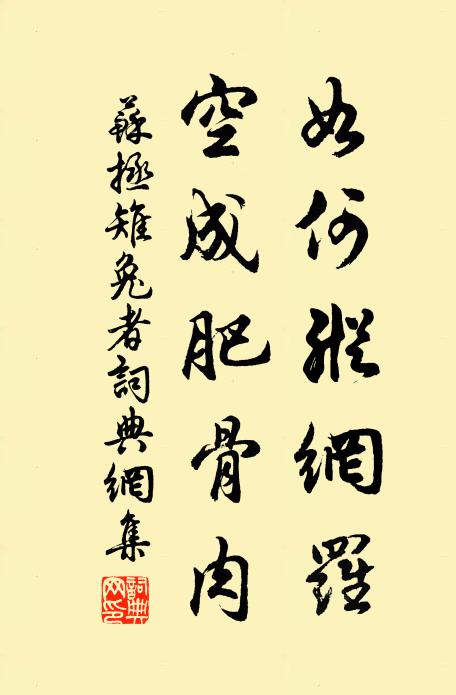 如何縱網羅
空成肥骨肉
蘇拯雉兔者詞典網集
詞典
网印